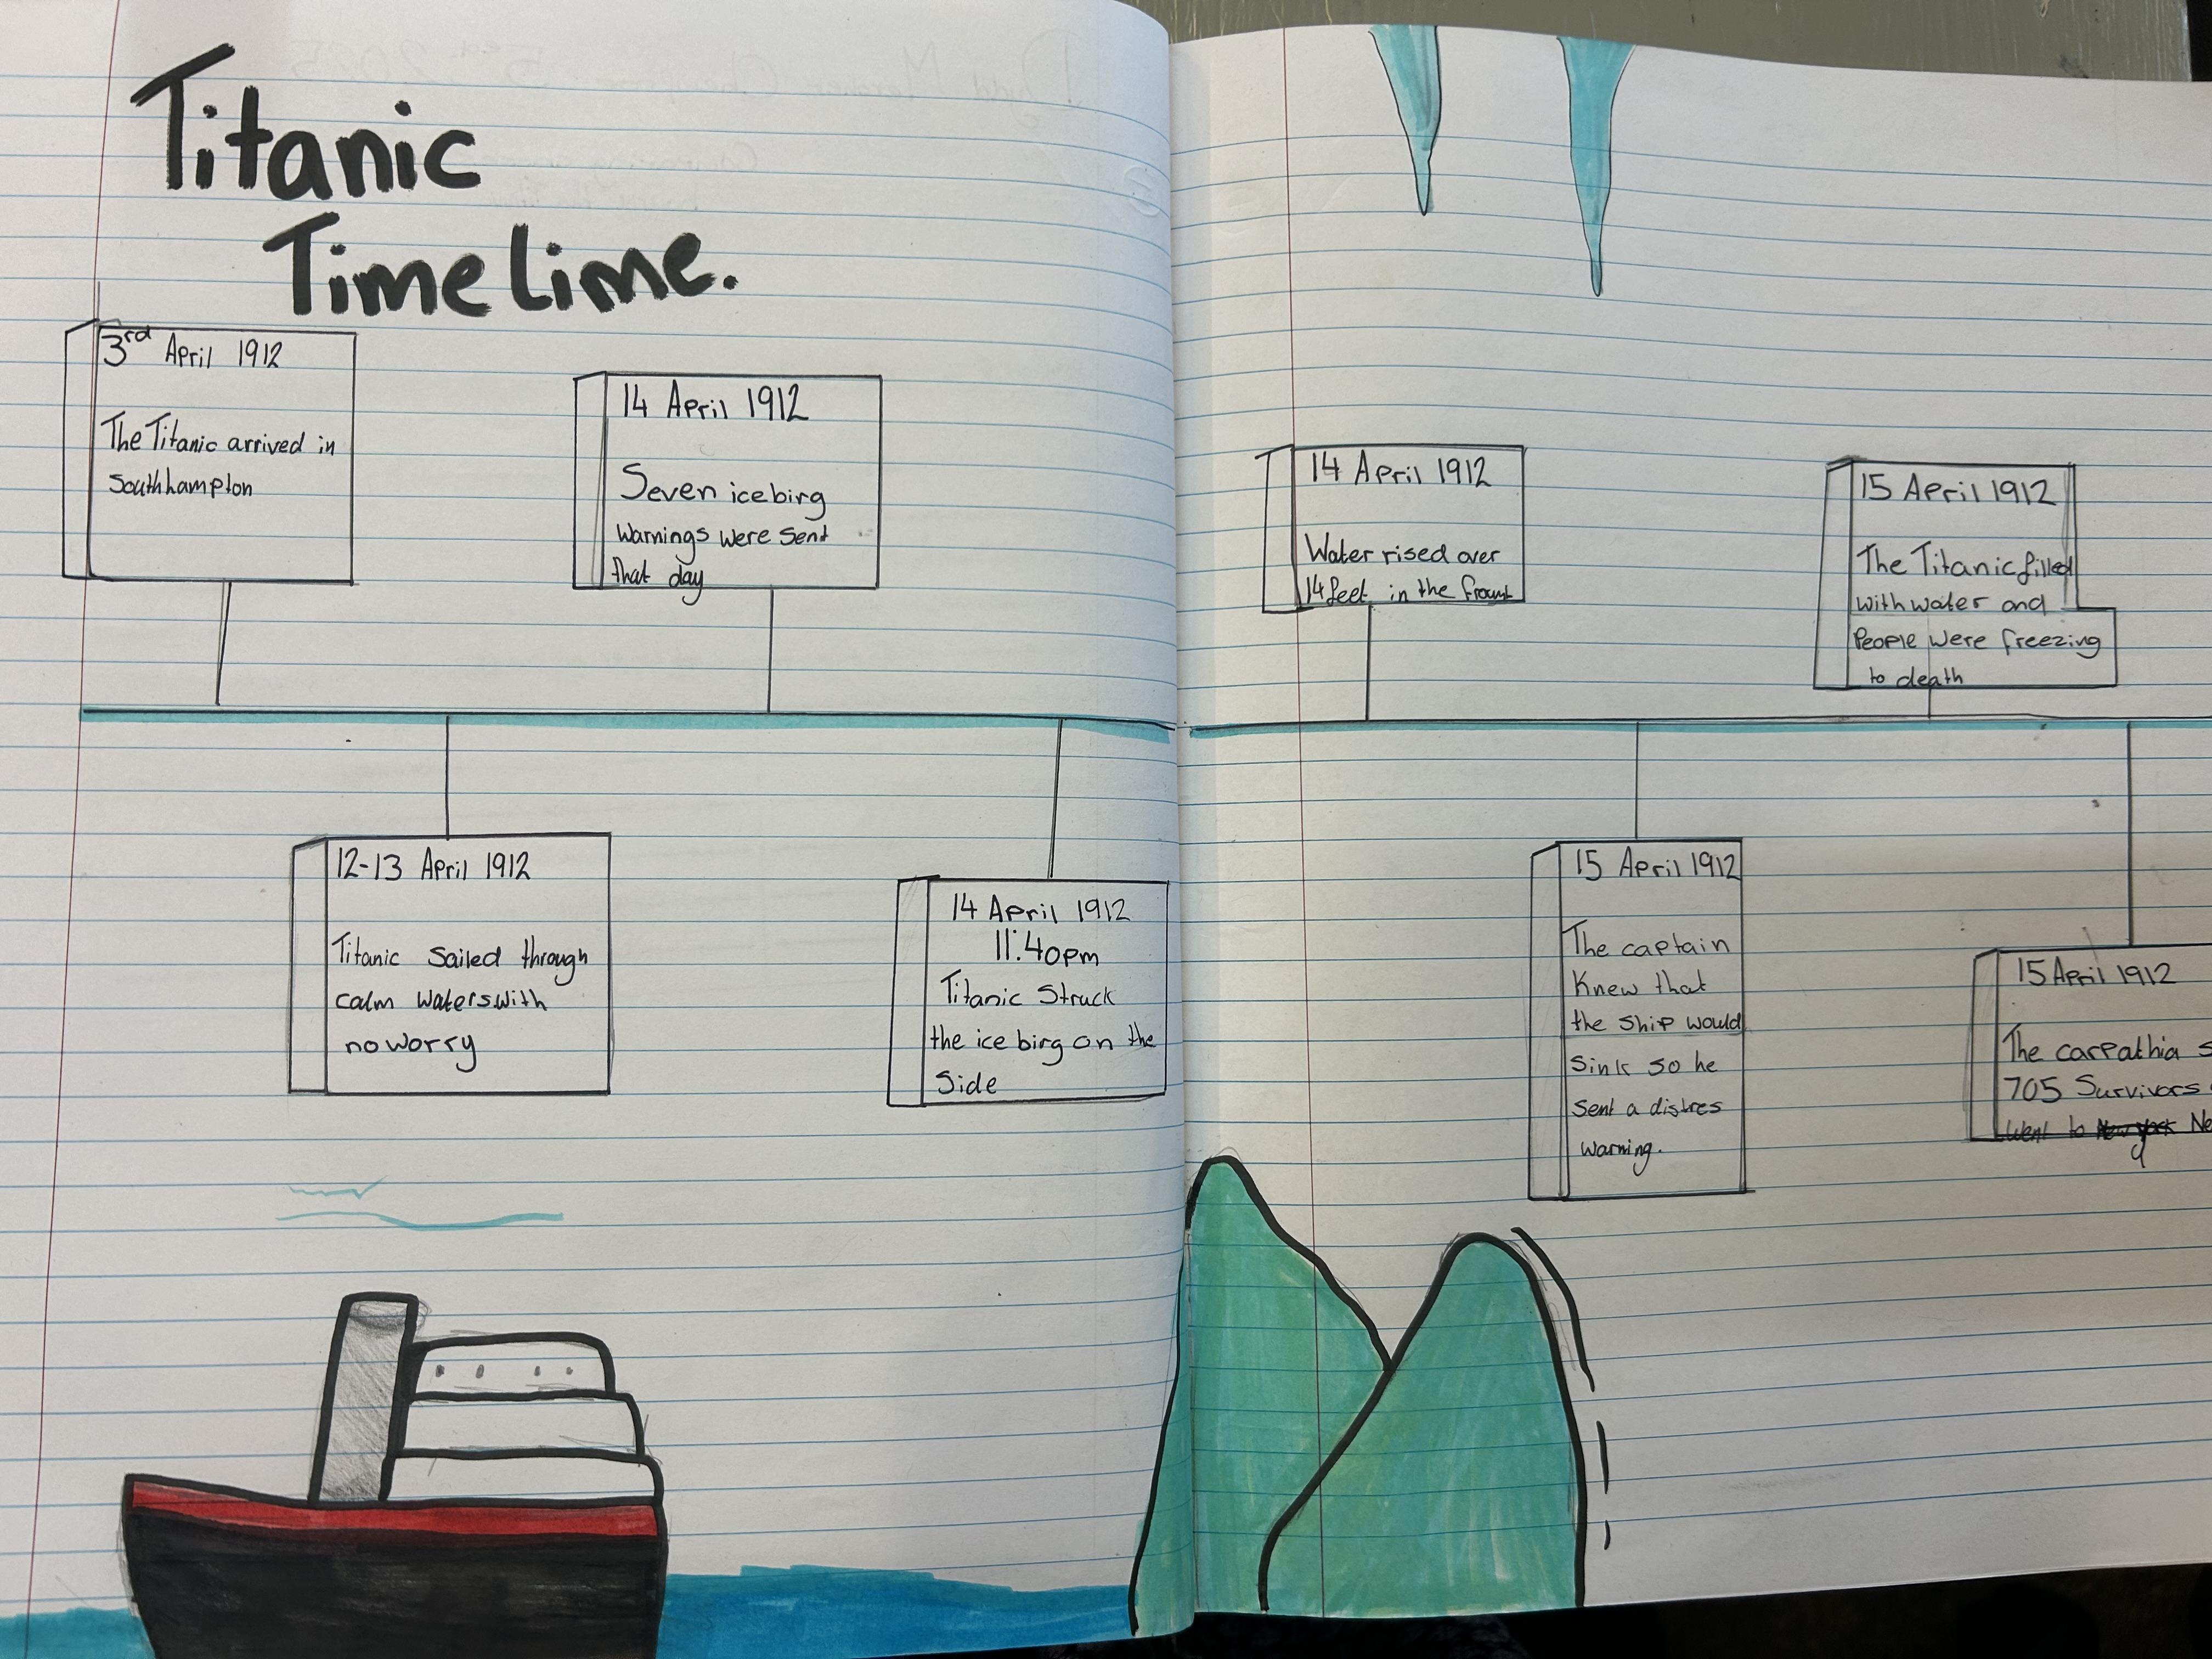 Titanic
Timelime.
3rd April 1912
The Titanic arrived in
Southhampton
12-13 April 1912
Titanic Sailed through
calm waters with
no worry
14 April 1912
Seven icebirg
Warnings were sent
that day
14 April 1912
11:40pm
Titanic Struck
the ice birg on the
Side
14 April 1912
Water rised over
14 feet in the
15 April 1912
The captain
Knew that
the ship would
sink so he
sent a distres
warning.
15 April 1912
The Titanic filled
with water and
People were freezing
to death
15 April 1912
The carpathia s
705 Survivors
went to New york Ne